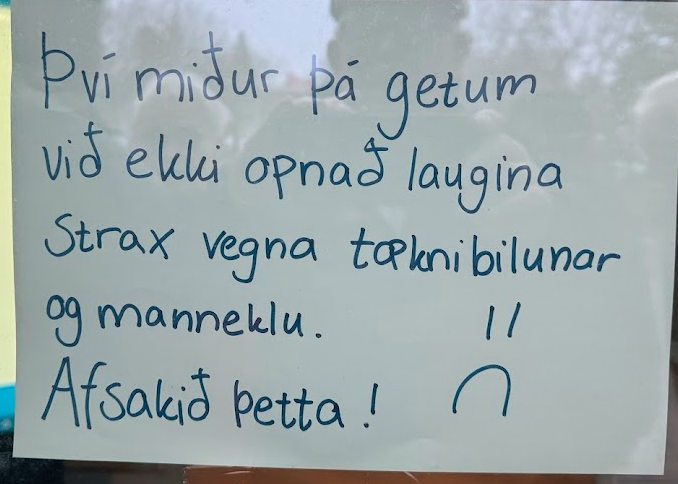 Því miður þá getum
við ekki opnað laugina
strax vegna tæknibilunar
og manneklu.
Afsakið þetta!